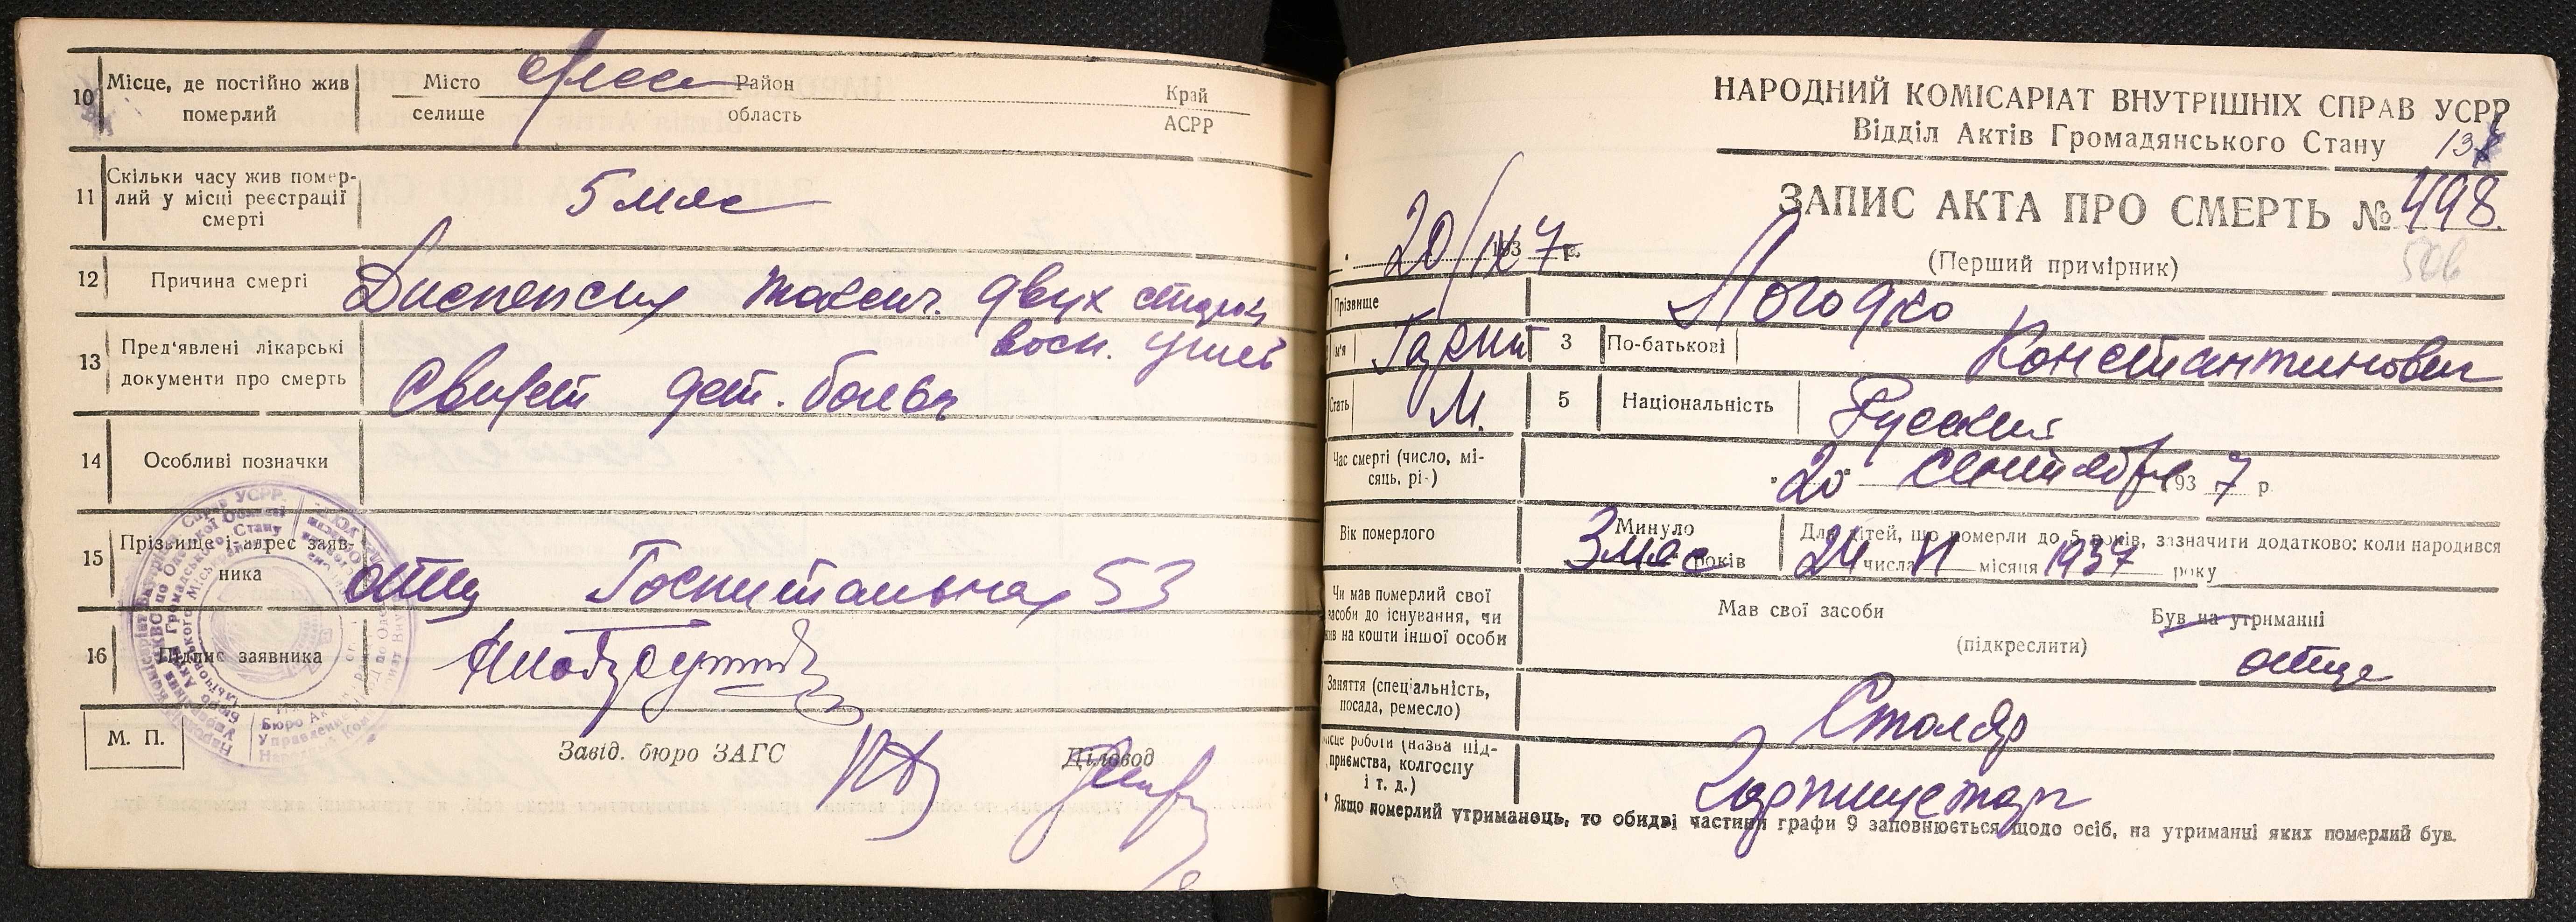 10 Місце, де постійно жив померлий
Місто Одесса Район Край
селище область АСРР
11 Скільки часу жив помер-
лий у місці реєстрації
смерті
5 мес
12 Причина смерті Диспепсия токсич. двух сторон
восп. ушей
13 Пред'явлені лікарські
документи про смерть
Свидет дет. больн
14 Особливі позначки
15 Прізвище і адрес заяв-
ника
отец Госпитальная 53
16 Підпис заявника
М. П.
Завід. бюро ЗАГС Діловод
НАРОДНИЙ КОМІСАРІАТ ВНУТРІШНІХ СПРАВ УСРР
Відділ Актів Громадянського Стану
ЗАПИС АКТА ПРО СМЕРТЬ № 498.
20/IX 1937 р.
(Перший примірник)
506
Прізвище
3 По-батькові Константинович
Стать М. 5 Національність Русский
Час смерті (число, мі-
сяць, рік)
20 сентября 1937 р
Вік померлого
Минуло 3 мес років
Для дітей, що померли до 5 років, зазначити додатково: коли народився
24 числа VI місяця 1937 року
Чи мав померлий свої
засоби до існування, чи
жив на кошти іншої особи
Мав свої засоби Був на утриманні
(підкреслити)
отца
Заняття (спеціальність,
посада, ремесло)
Столяр
Місце роботи (назва під-
приємства, колгоспу
і т. д.)
* Якщо померлий утриманець, то обидві частини графи 9 заповнюється щодо осіб, на утриманні яких померлий був.